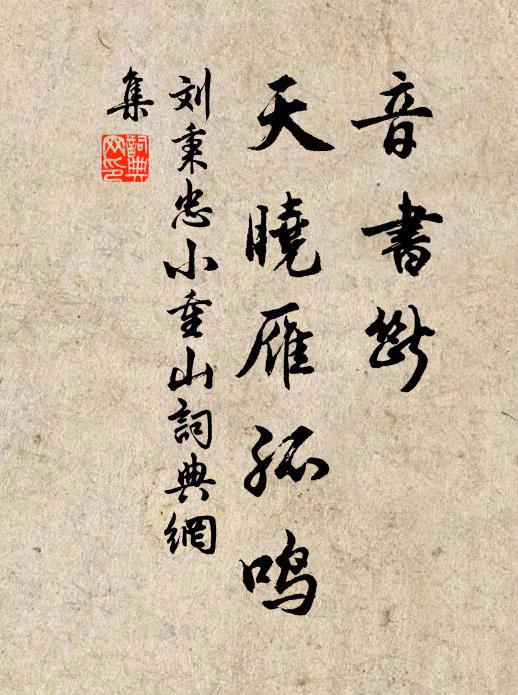 音書斷
天曉雁孤鸣
刘秉忠小重山詞典網
集
詞典网印